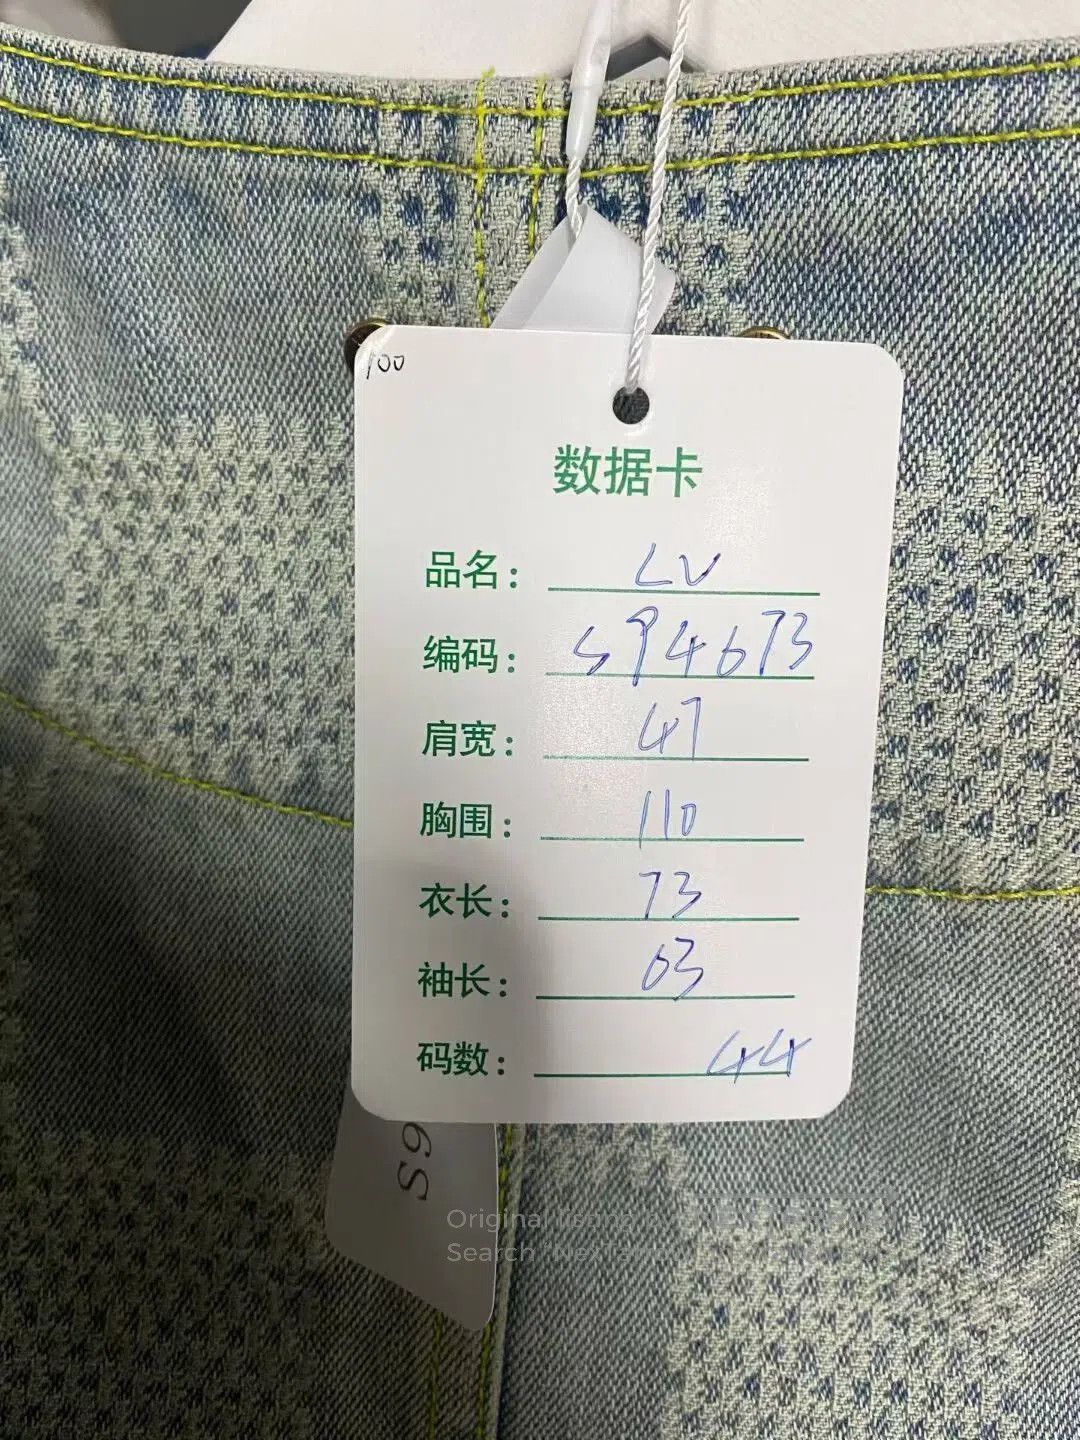 100
数据卡
品名： LV
编码： S94673
肩宽： 47
胸围： 110
衣长： 73
袖长： 63
码数： 44
S9
Original listing
Search "Nex